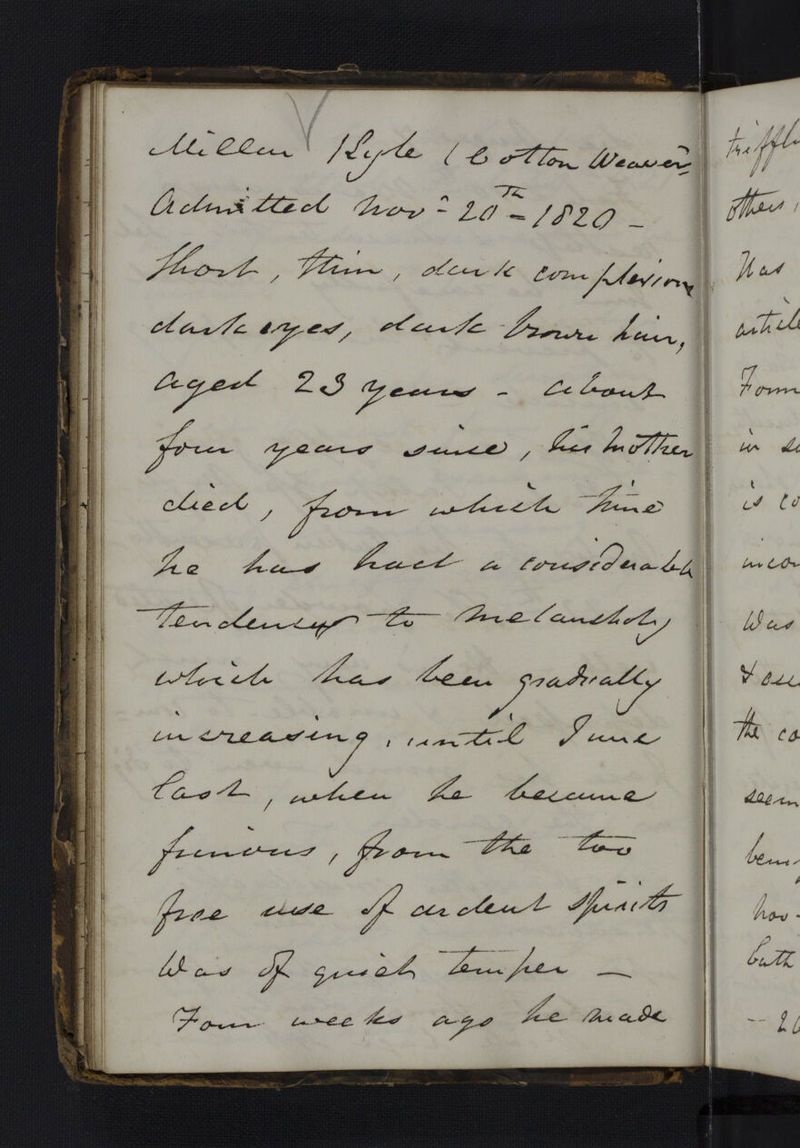 Millar Kyle (Cotton Weaver)
Admitted Nov- 20th = 1820 -
Short, thin, dark complexion
dark eyes, dark brown hair,
aged 23 years - about
four years since, his mother
died, from which time
he has had a considerable
tendency to melancholy
which has been gradually
increasing, until June
last, when he became
furious, from the too
free use of ardent spirits
Was of quiet temper —
Four weeks ago he made
others,
Has
in
is
Was
the
seem